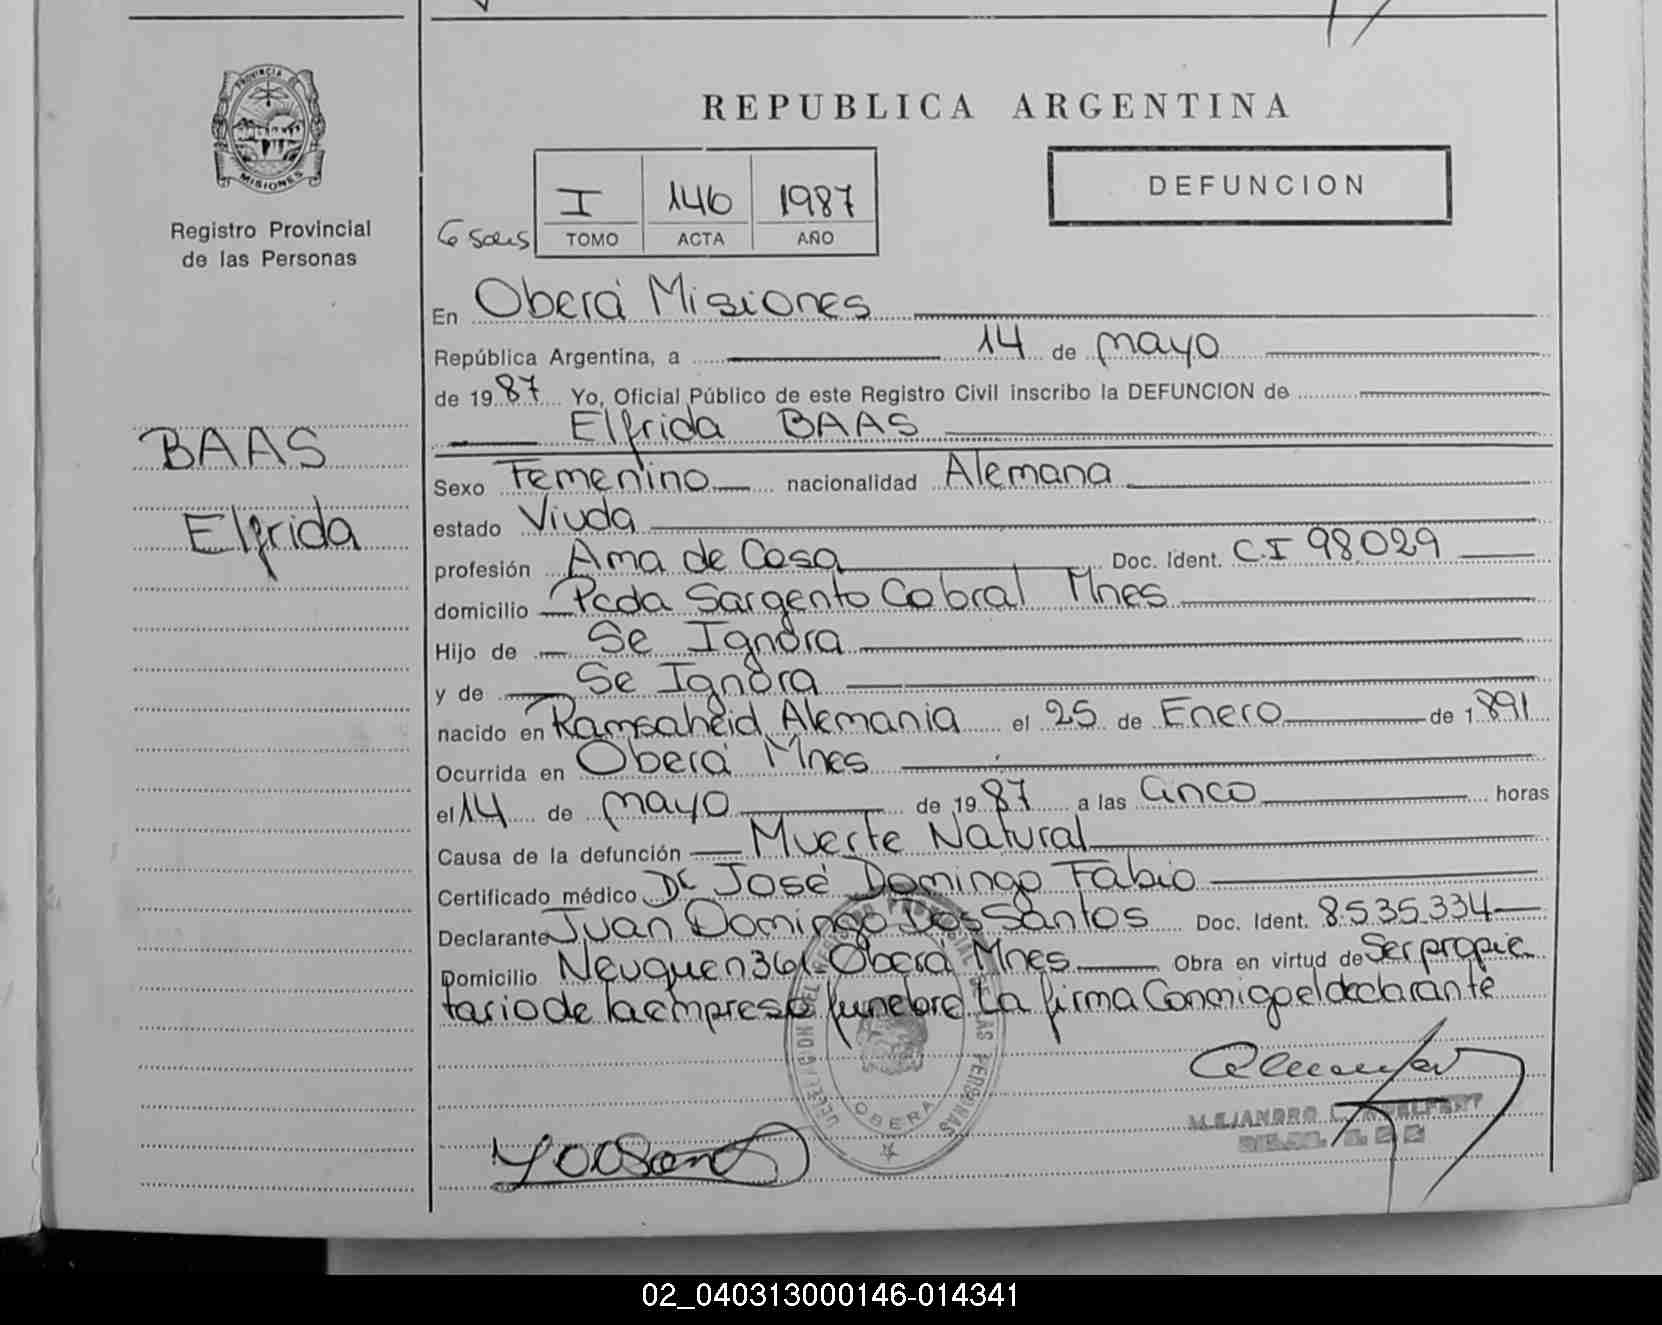 PROVINCIA
MISIONES
Registro Provincial
de las Personas
BAAS
Elfrida
REPUBLICA ARGENTINA
DEFUNCION
I 146 1987
TOMO ACTA AÑO
En Oberá Misiones
República Argentina, a 14 de mayo
de 1987 Yo, Oficial Público de este Registro Civil inscribo la DEFUNCION de
Elfrida BAAS
Sexo Femenino nacionalidad Alemana
estado Viuda
profesión Ama de Casa Doc. Ident. C.I 98.029
domicilio Pcda Sargento Cabral Mnes
Hijo de Se Ignora
y de Se Ignora
nacido en Ramsaheid Alemania el 25 de Enero de 1891
Ocurrida en Oberá Mnes
el 14 de mayo de 1987 a las Cinco horas
Causa de la defunción Muerte Natural
Certificado médico Dr José Domingo Fabio
Declarante Juan Domingo Dos Santos Doc. Ident. 8.535.334
Domicilio Neuquen 361 Oberá Mnes Obra en virtud de Ser propie
tario de la empresa funebre La firma Conmigo el declarante
OBERA
ALEJANDRO
02_040313000146-014341